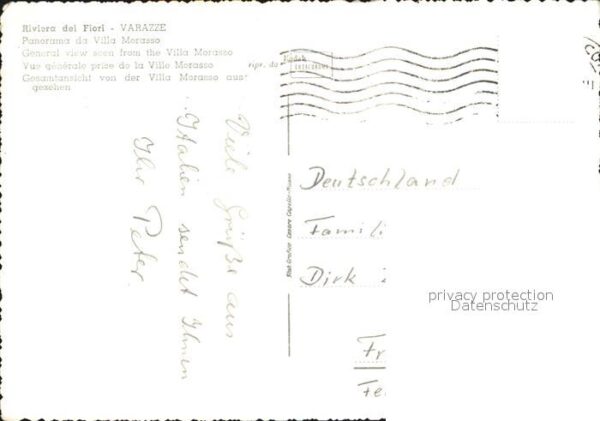 Riviera dei Fiori - VARAZZE
Panorama da Villa Morasso
General view seen from the Villa Morasso
Vue générale prise de la Ville Morasso
Gesamtansicht von der Villa Morasso aus
gesehen
ripr. da
Viele Grüße aus
Italien sendet Ihnen
Ihr Peter.
Deutschland
Famili
Dirk
Fr
Fe
privacy protection
Datenschutz